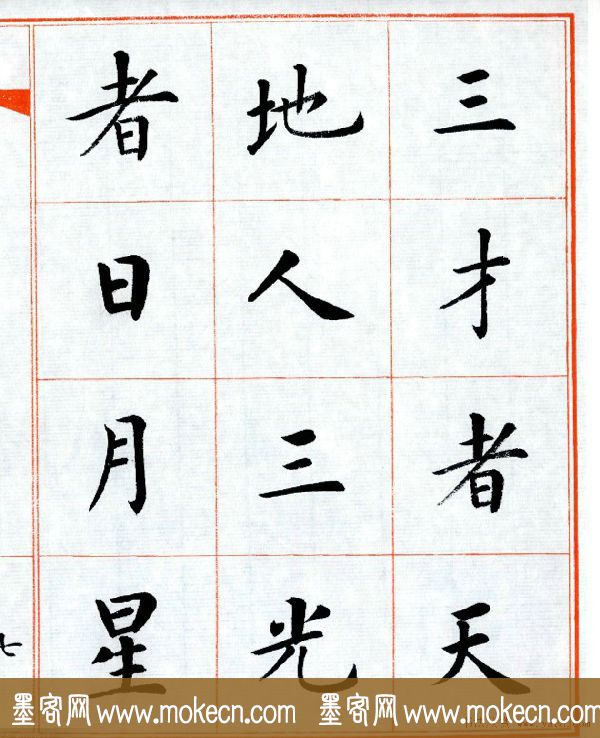 三才者天
地人三光
者日月星
七
墨客网 www.mokecn.com 墨客网 www.mokecn.com